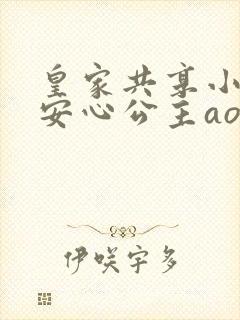 皇家共享小
安心公主ao
伊咲宇多